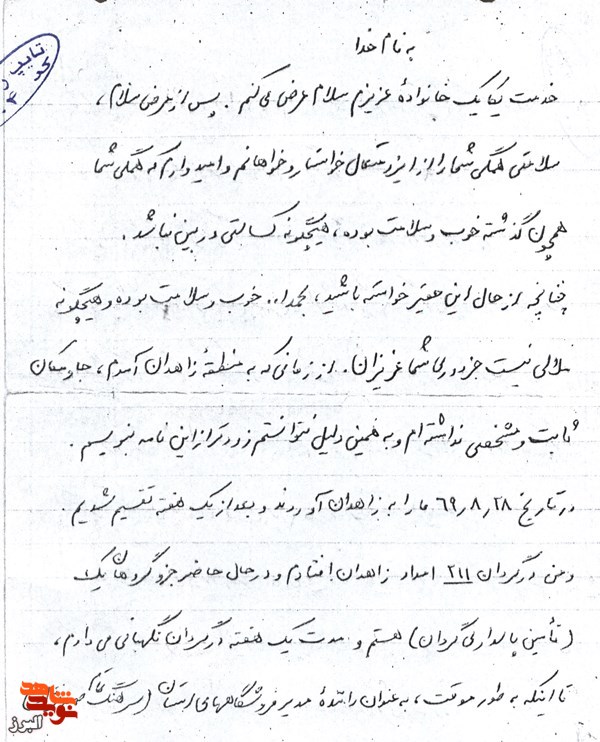 به نام خدا
خدمت یکایک خانوادهٔ عزیزم سلام عرض می‌کنم. پس از عرض سلام،
سلامتی همگی شما را از ایزد متعال خواستار و خواهانم و امیدوارم که همگی شما
همچون گذشته خوب و سلامت بوده، هیچگونه کسالتی در بین نباشد.
چنانچه از حال این حقیر خواسته باشید، بحمدا.. خوب و سلامت بوده و هیچگونه
ملالی نیست جز دوری شما عزیزان. از زمانی که به منطقهٔ زاهدان آمدم، جا و مکان
ثابت و مشخصی نداشته‌ام و به همین دلیل نتوانستم زودتر از این نامه بنویسم.
در تاریخ ۶۹٫۸٫۲۸ ما را به زاهدان آوردند و بعد از یک هفته تقسیم شدیم.
و من در گردان ۲۱۱ امداد زاهدان افتادم و در حال حاضر جزو گروهان یک
(تأمین پاسداری گردان) هستم و مدت یک هفته در گردان نگهبانی می‌دادم،
تا اینکه به طور موقت، به عنوان رانندهٔ مدیر فروشگاههای استان (سرهنگ
تایپ
شاهد
نوید
البرز